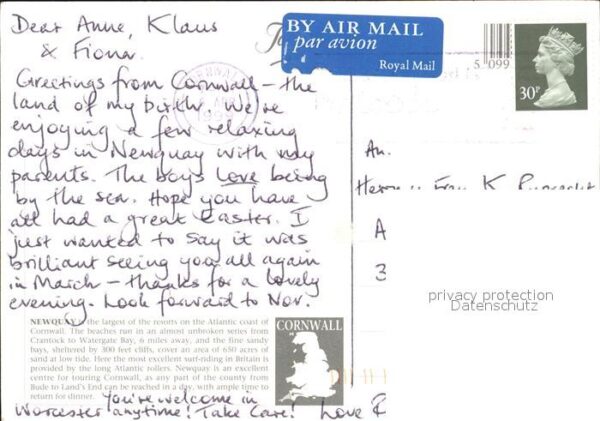 Dear Anne, Klaus
& Fiona.
Greetings from Cornwall - the
land of my birth. We're
enjoying a few relaxing
days in Newquay with my
parents. The boys love being
by the sea. Hope you have
all had a great Easter. I
just wanted to say it was
brilliant seeing you all again
in March - thanks for a lovely
evening. Look forward to Nov.
NEWQUAY is the largest of the resorts on the Atlantic coast of
Cornwall. The beaches run in an almost unbroken series from
Crantock to Watergate Bay, 6 miles away, and the fine sandy
bays, sheltered by 300 feet cliffs, cover an area of 650 acres of
sand at low tide. Here the most excellent surf-riding in Britain is
provided by the long Atlantic rollers. Newquay is an excellent
centre for touring Cornwall, as any part of the county from
Bude to Land's End can be reached in a day, with ample time to
return for dinner.
You're welcome in
Worcester anytime! Take Care! Love
CORNWALL
BY AIR MAIL
par avion
Royal Mail
5 099
30P
An.
Herrn u Frau K
A
3
privacy protection
Datenschutz